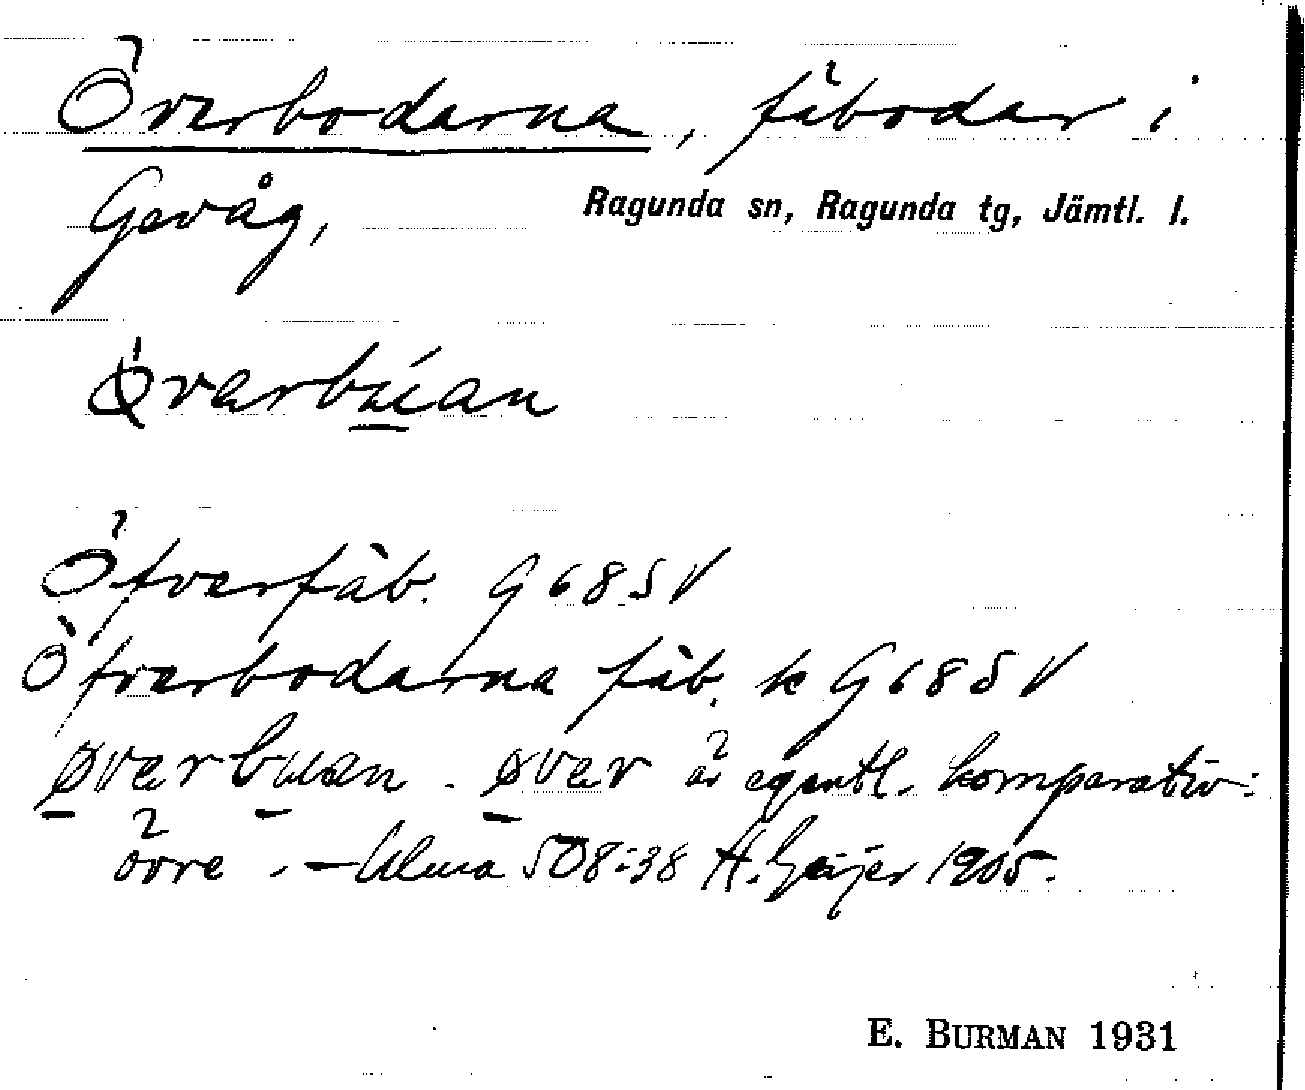 Överbodarna, fäbodar i
Gevåg, Ragunda sn, Ragunda tg, Jämtl. l.
Øvarbúan
Öfverfäb. G 68 S V
Öfverbodarna fäb. k G 68 S V
øvarbuan. øvar är egentl. komparativ:
övre. – Ulma 508:38 H. Geijer 1905.
E. BURMAN 1931